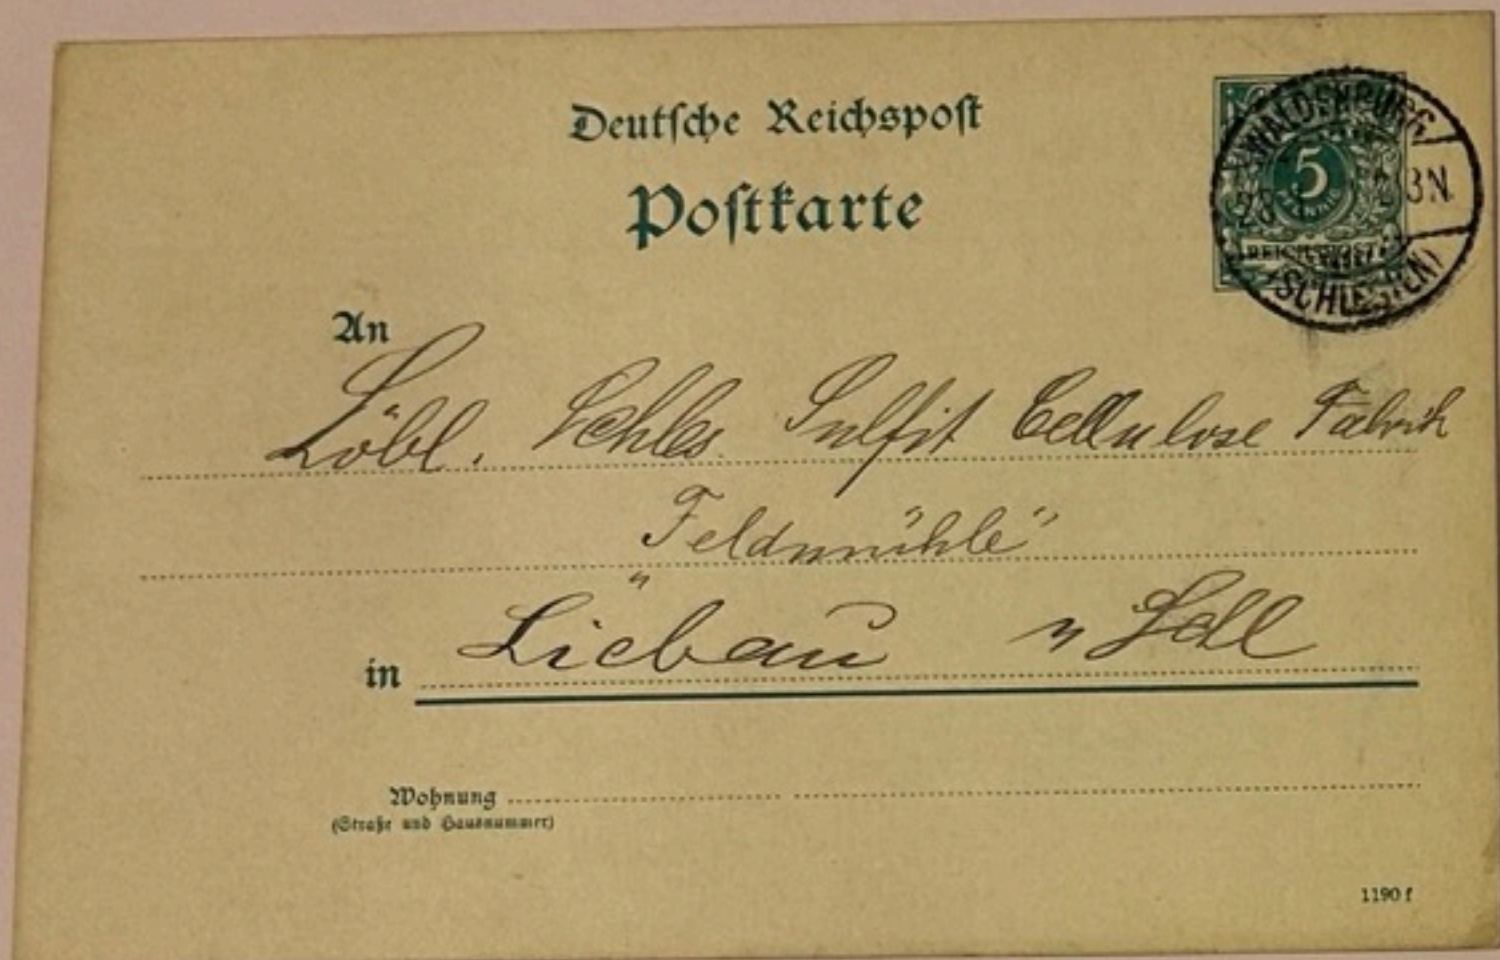 Deutsche Reichspost
Postkarte
WALDENBURG
5
PFENNIG
REICHSPOST
(SCHLESIEN)
An
Löbl. Schles. Sulfit Cellulose Fabrik
"Feldmühle"
in Liebau Schl
Wohnung
(Straße und Hausnummer)
1190 f